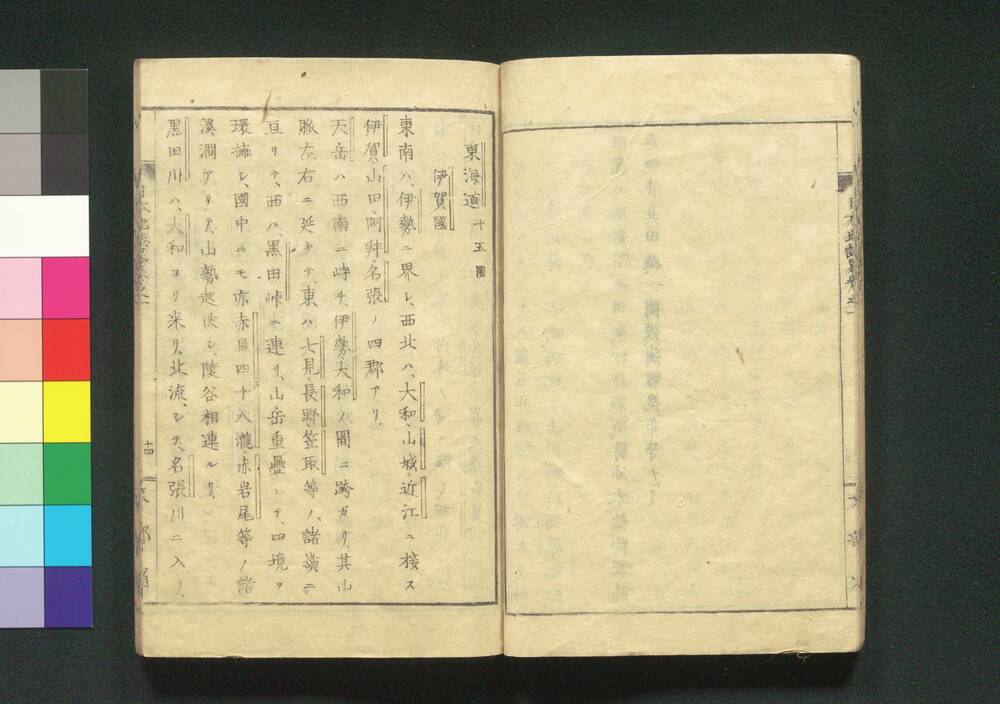 東海道十五國
伊賀國
東南ハ、伊勢ニ界シ、西北ハ、大和、山城、近江ニ接ス
伊賀、山田、阿拜、名張ノ四郡アリ、
天岳ハ西南ニ峙チ、伊勢、大和ノ間ニ跨ガリ其山
脈左右ニ延キテ、東ハ七見、長野、笠取等ノ、諸嶺ニ
亘リテ、西ハ、黒田峠ニ連リ、山岳重疊シテ、四境ヲ
環擁シ、國中ニモ亦赤目四十八瀧、赤岩尾等ノ諸
溪澗アリテ、山勢起伏シ、陵谷相連ルリ、
黒田川ハ、大和ヨリ来リ、北流シテ、名張川ニ入リ、
十四